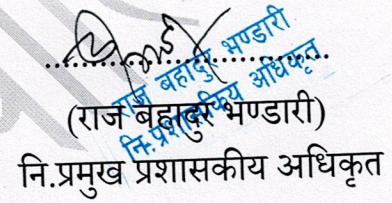 राज बहादुर भण्डारी
नि. प्रशासकिय अधिकृत
(राज बहादुर भण्डारी)
नि.प्रमुख प्रशासकीय अधिकृत